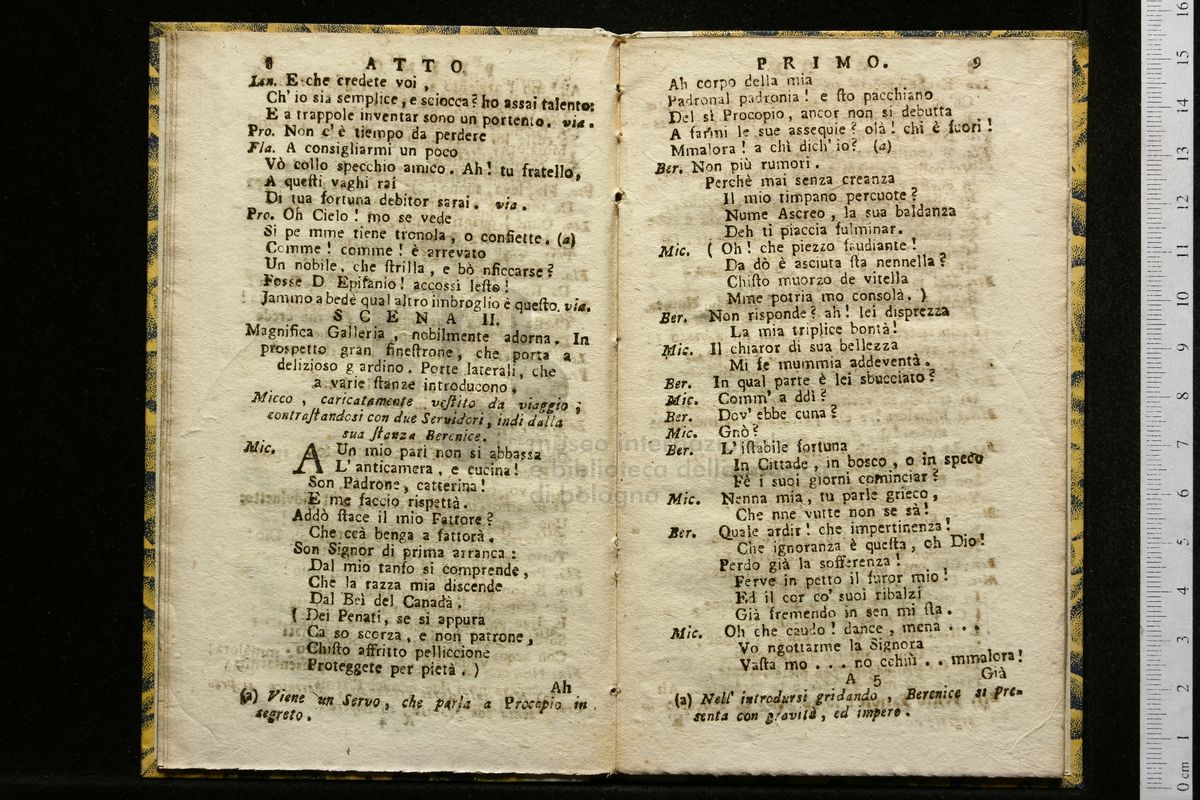 8 ATTO
Lin. E che credete voi,
Ch' io sia semplice, e sciocca? ho assai talento:
E a trappole inventar sono un portento. via.
Pro. Non c'è tiempo da perdere
Fla. A consigliarmi un poco
Vò collo specchio amico. Ah! tu fratello,
A questi vaghi rai
Di tua fortuna debitor sarai. via.
Pro. Oh Cielo! mo se vede
Si pe mme tiene tronola, o confiette. (a)
Comme! comme! è arrevato
Un nobile, che strilla, e bò nficcarse?
Fosse D Epifanio! accossì lesto!
Jammo a bedè qual altro imbroglio è questo. via.
SCENA II.
Magnifica Galleria, nobilmente adorna. In
prospetto gran finestrone, che porta a
delizioso g ardino. Porte laterali, che
a varie stanze introducono.
Micco, caricatamente vestito da viaggio;
contrastandosi con due Servidori, indi dalla
sua stanza Berenice.
Mic. AUn mio pari non si abbassa
L' anticamera, e cucina!
Son Padrone, catterina!
E me faccio rispettà.
Addò stace il mio Fattore?
Che ccà benga a fattorà.
Son Signor di prima arranca:
Dal mio tanfo si comprende,
Che la razza mia discende
Dal Bei del Canadà.
( Dei Penati, se si appura
Ca so scorza, e non patrone,
Chisto affritto pelliccione
Proteggete per pietà. )
Ah
(a) Viene un Servo, che parla a Procopio in
segreto.
PRIMO. 9
Ah corpo della mia
Padronal padronia! e sto pacchiano
Del sì Procopio, ancor non si debutta
A farmi le sue assequie? olà! chi è fuori!
Mmalora! a chi dich' io? (a)
Ber. Non più rumori.
Perchè mai senza creanza
Il mio timpano percuote?
Nume Ascreo, la sua baldanza
Deh ti piaccia fulminar.
Mic. ( Oh! che piezzo studiante!
Da dò è asciuta sta nennella?
Chisto muorzo de vitella
Mme potria mo consolà. )
Ber. Non risponde? ah! lei disprezza
La mia triplice bontà!
Mic. Il chiaror di sua bellezza
Mi fe mummia addeventà.
Ber. In qual parte è lei sbucciato?
Mic. Comm' a ddì?
Ber. Dov' ebbe cuna?
Mic. Gnò?
Ber. L' istabile fortuna
In Cittade, in bosco, o in speco
Fè i suoi giorni cominciar?
Mic. Nenna mia, tu parle grieco,
Che nne vutte non se sà!
Ber. Quale ardir! che impertinenza!
Che ignoranza è questa, oh Dio!
Perdo già la sofferenza!
Ferve in petto il furor mio!
Ed il cor co' suoi ribalzi
Già fremendo in sen mi sta.
Mic. Oh che caudo! dance, mena . . .
Vo ngottarme la Signora
Vasta mo . . . no cchiù . . mmalora!
A 5 Già
(a) Nell' introdursi gridando, Berenice si pre-
senta con gravità, ed impero.
museo internazi
e biblioteca della
di bologna